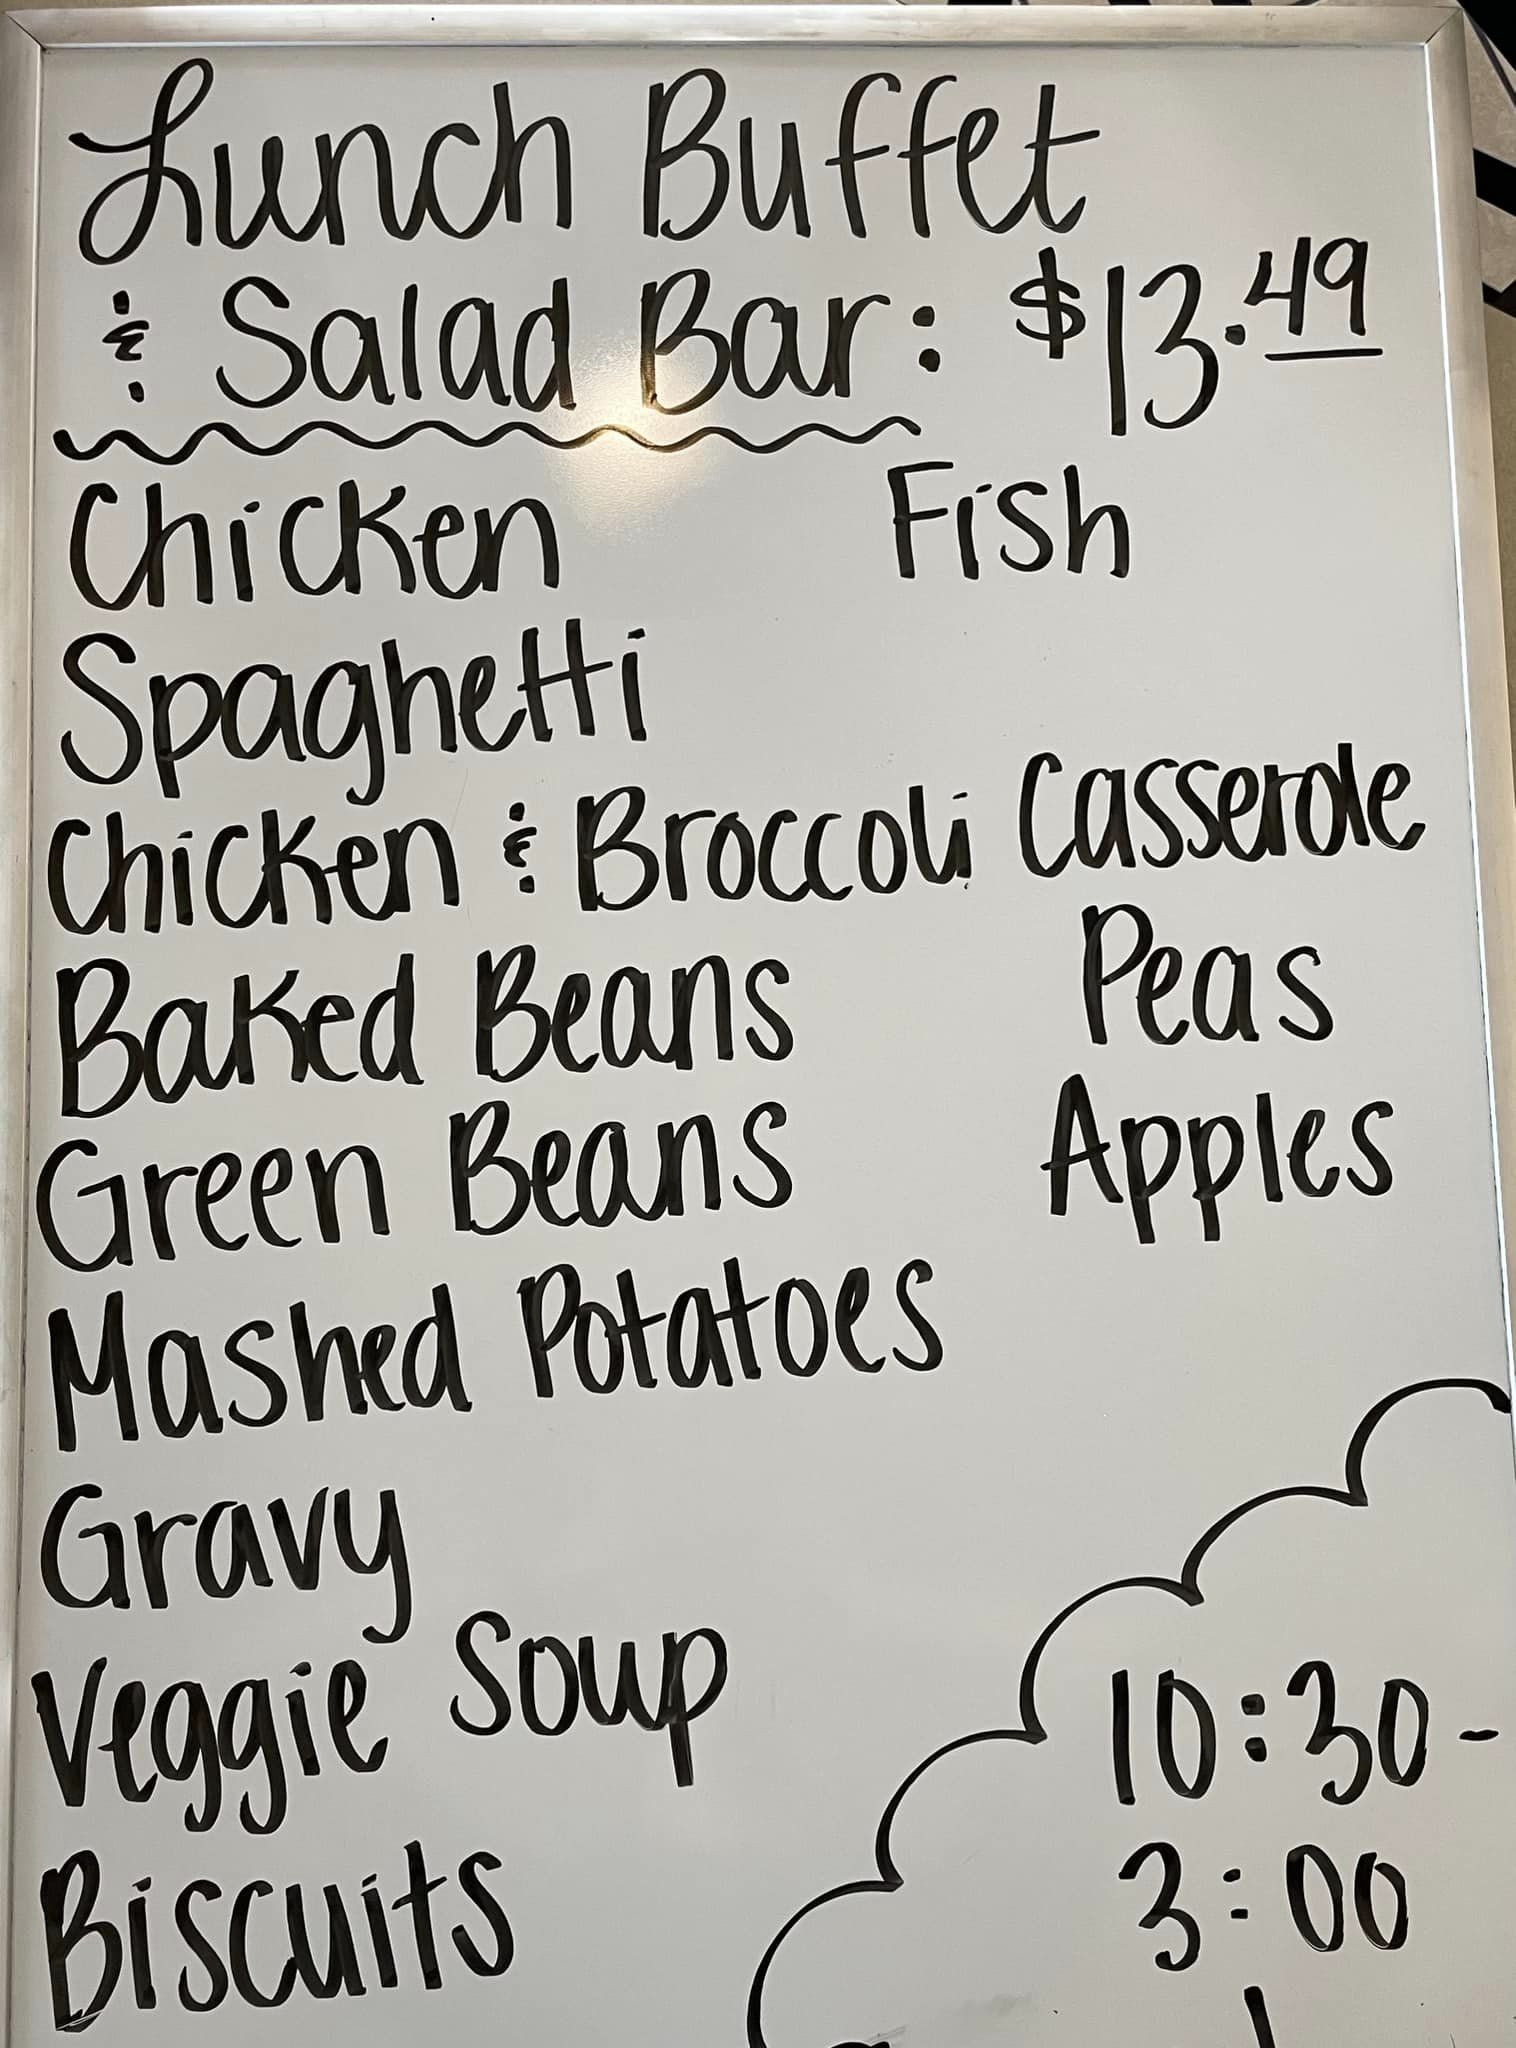 Lunch Buffet
& Salad Bar: $13.49
Chicken Fish
Spaghetti
Chicken & Broccoli Casserole
Baked Beans Peas
Green Beans Apples
Mashed Potatoes
Gravy
Veggie Soup
Biscuits
10:30-
3:00